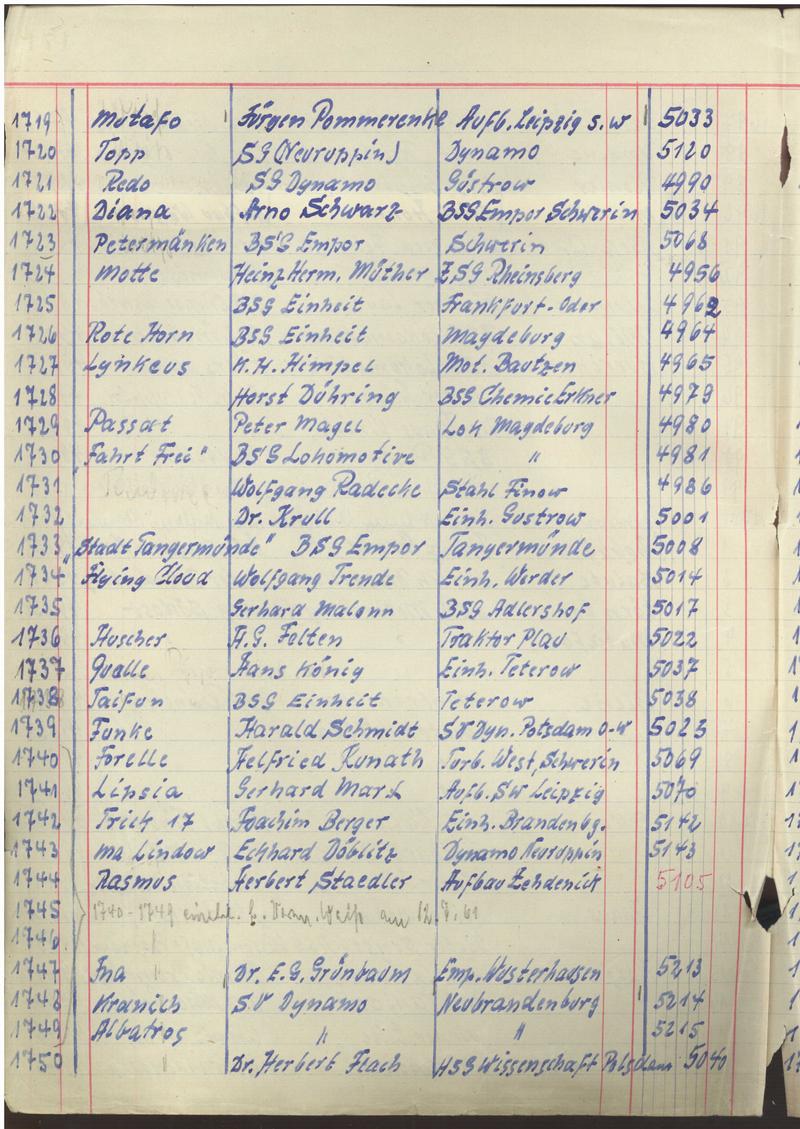 1719 Mutafo Jürgen Pommerenke Aufb. Leipzig S.W 5033
1720 Topp SG (Neuruppin) Dynamo 5120
1721 Redo SG Dynamo Güstrow 4990
1722 Diana Arno Schwarz BSG Empor Schwerin 5034
1723 Petermänken BSG Empor Schwerin 5068
1724 Motte Heinz Herm. Müther ZSG Rheinsberg 4956
1725 BSG Einheit Frankfurt-Oder 4962
1726 Rote Horn BSG Einheit Magdeburg 4964
1727 Lynkeus K.H. Himpel Mot. Bautzen 4965
1728 Horst Dühring BSG Chemie Erkner 4979
1729 Passat Peter Magel Lok Magdeburg 4980
1730 „Fahrt Frei" BSG Lokomotive " 4981
1731 Wolfgang Radecke Stahl Finow 4986
1732 Dr. Krull Einh. Güstrow 5001
1733 „Stadt Tangermünde" BSG Empor Tangermünde 5008
1734 Flying Cloud Wolfgang Trende Einh. Werder 5014
1735 Gerhard Malonn BSG Adlershof 5017
1736 Huscher H.G. Folten Traktor Plau 5022
1737 Qualle Hans König Einh. Teterow 5037
1738 Taifun BSG Einheit Teterow 5038
1739 Funke Harald Schmidt SV Dyn. Potsdam O-W 5023
1740 Forelle Helfried Kunath Turb. West, Schwerin 5069
1741 Lipsia Gerhard Marx Aufb. SW Leipzig 5070
1742 Trick 17 Joachim Berger Einh. Brandenbg. 5142
1743 Ma Lindow Eckhard Döblitz Dynamo Neuruppin 5143
1744 Rasmus Herbert Staedler Aufbau Zehdenick 5105
1745 1740-1749 Verm. Weiß am 12. 61
1746 "
1747 Ina " Dr. E.G. Grünbaum Emp. Wusterhausen 5213
1748 Kranich SV Dynamo Neubrandenburg 5214
1749 Albatros " " 5215
1750 " Dr. Herbert Flach HSG Wissenschaft Potsdam 5040